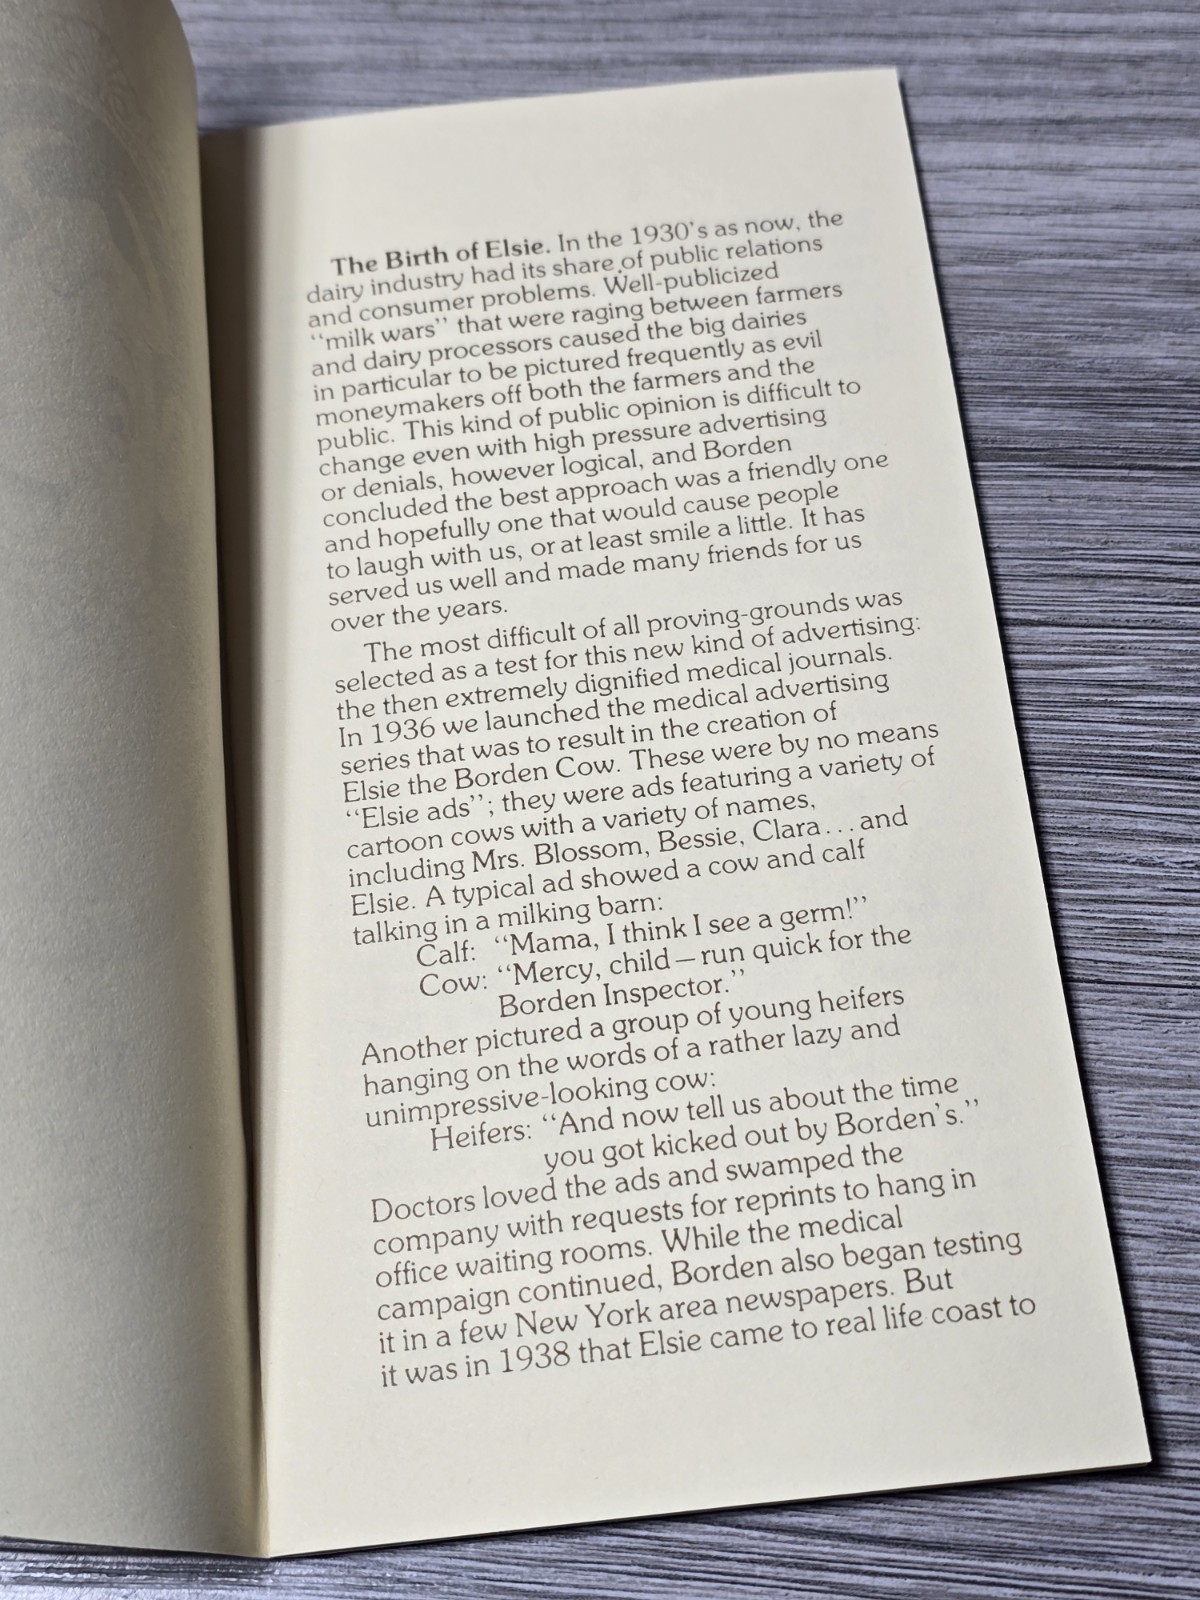 The Birth of Elsie. In the 1930's as now, the
dairy industry had its share of public relations
and consumer problems. Well-publicized
"milk wars" that were raging between farmers
and dairy processors caused the big dairies
in particular to be pictured frequently as evil
moneymakers off both the farmers and the
public. This kind of public opinion is difficult to
change even with high pressure advertising
or denials, however logical, and Borden
concluded the best approach was a friendly one
and hopefully one that would cause people
to laugh with us, or at least smile a little. It has
served us well and made many friends for us
over the years.
The most difficult of all proving-grounds was
selected as a test for this new kind of advertising:
the then extremely dignified medical journals.
In 1936 we launched the medical advertising
series that was to result in the creation of
Elsie the Borden Cow. These were by no means
"Elsie ads"; they were ads featuring a variety of
cartoon cows with a variety of names,
including Mrs. Blossom, Bessie, Clara...and
Elsie. A typical ad showed a cow and calf
talking in a milking barn:
Calf: "Mama, I think I see a germ!"
Cow: "Mercy, child—run quick for the
Borden Inspector."
Another pictured a group of young heifers
hanging on the words of a rather lazy and
unimpressive-looking cow:
Heifers: "And now tell us about the time
you got kicked out by Borden's."
Doctors loved the ads and swamped the
company with requests for reprints to hang in
office waiting rooms. While the medical
campaign continued, Borden also began testing
it in a few New York area newspapers. But
it was in 1938 that Elsie came to real life coast to